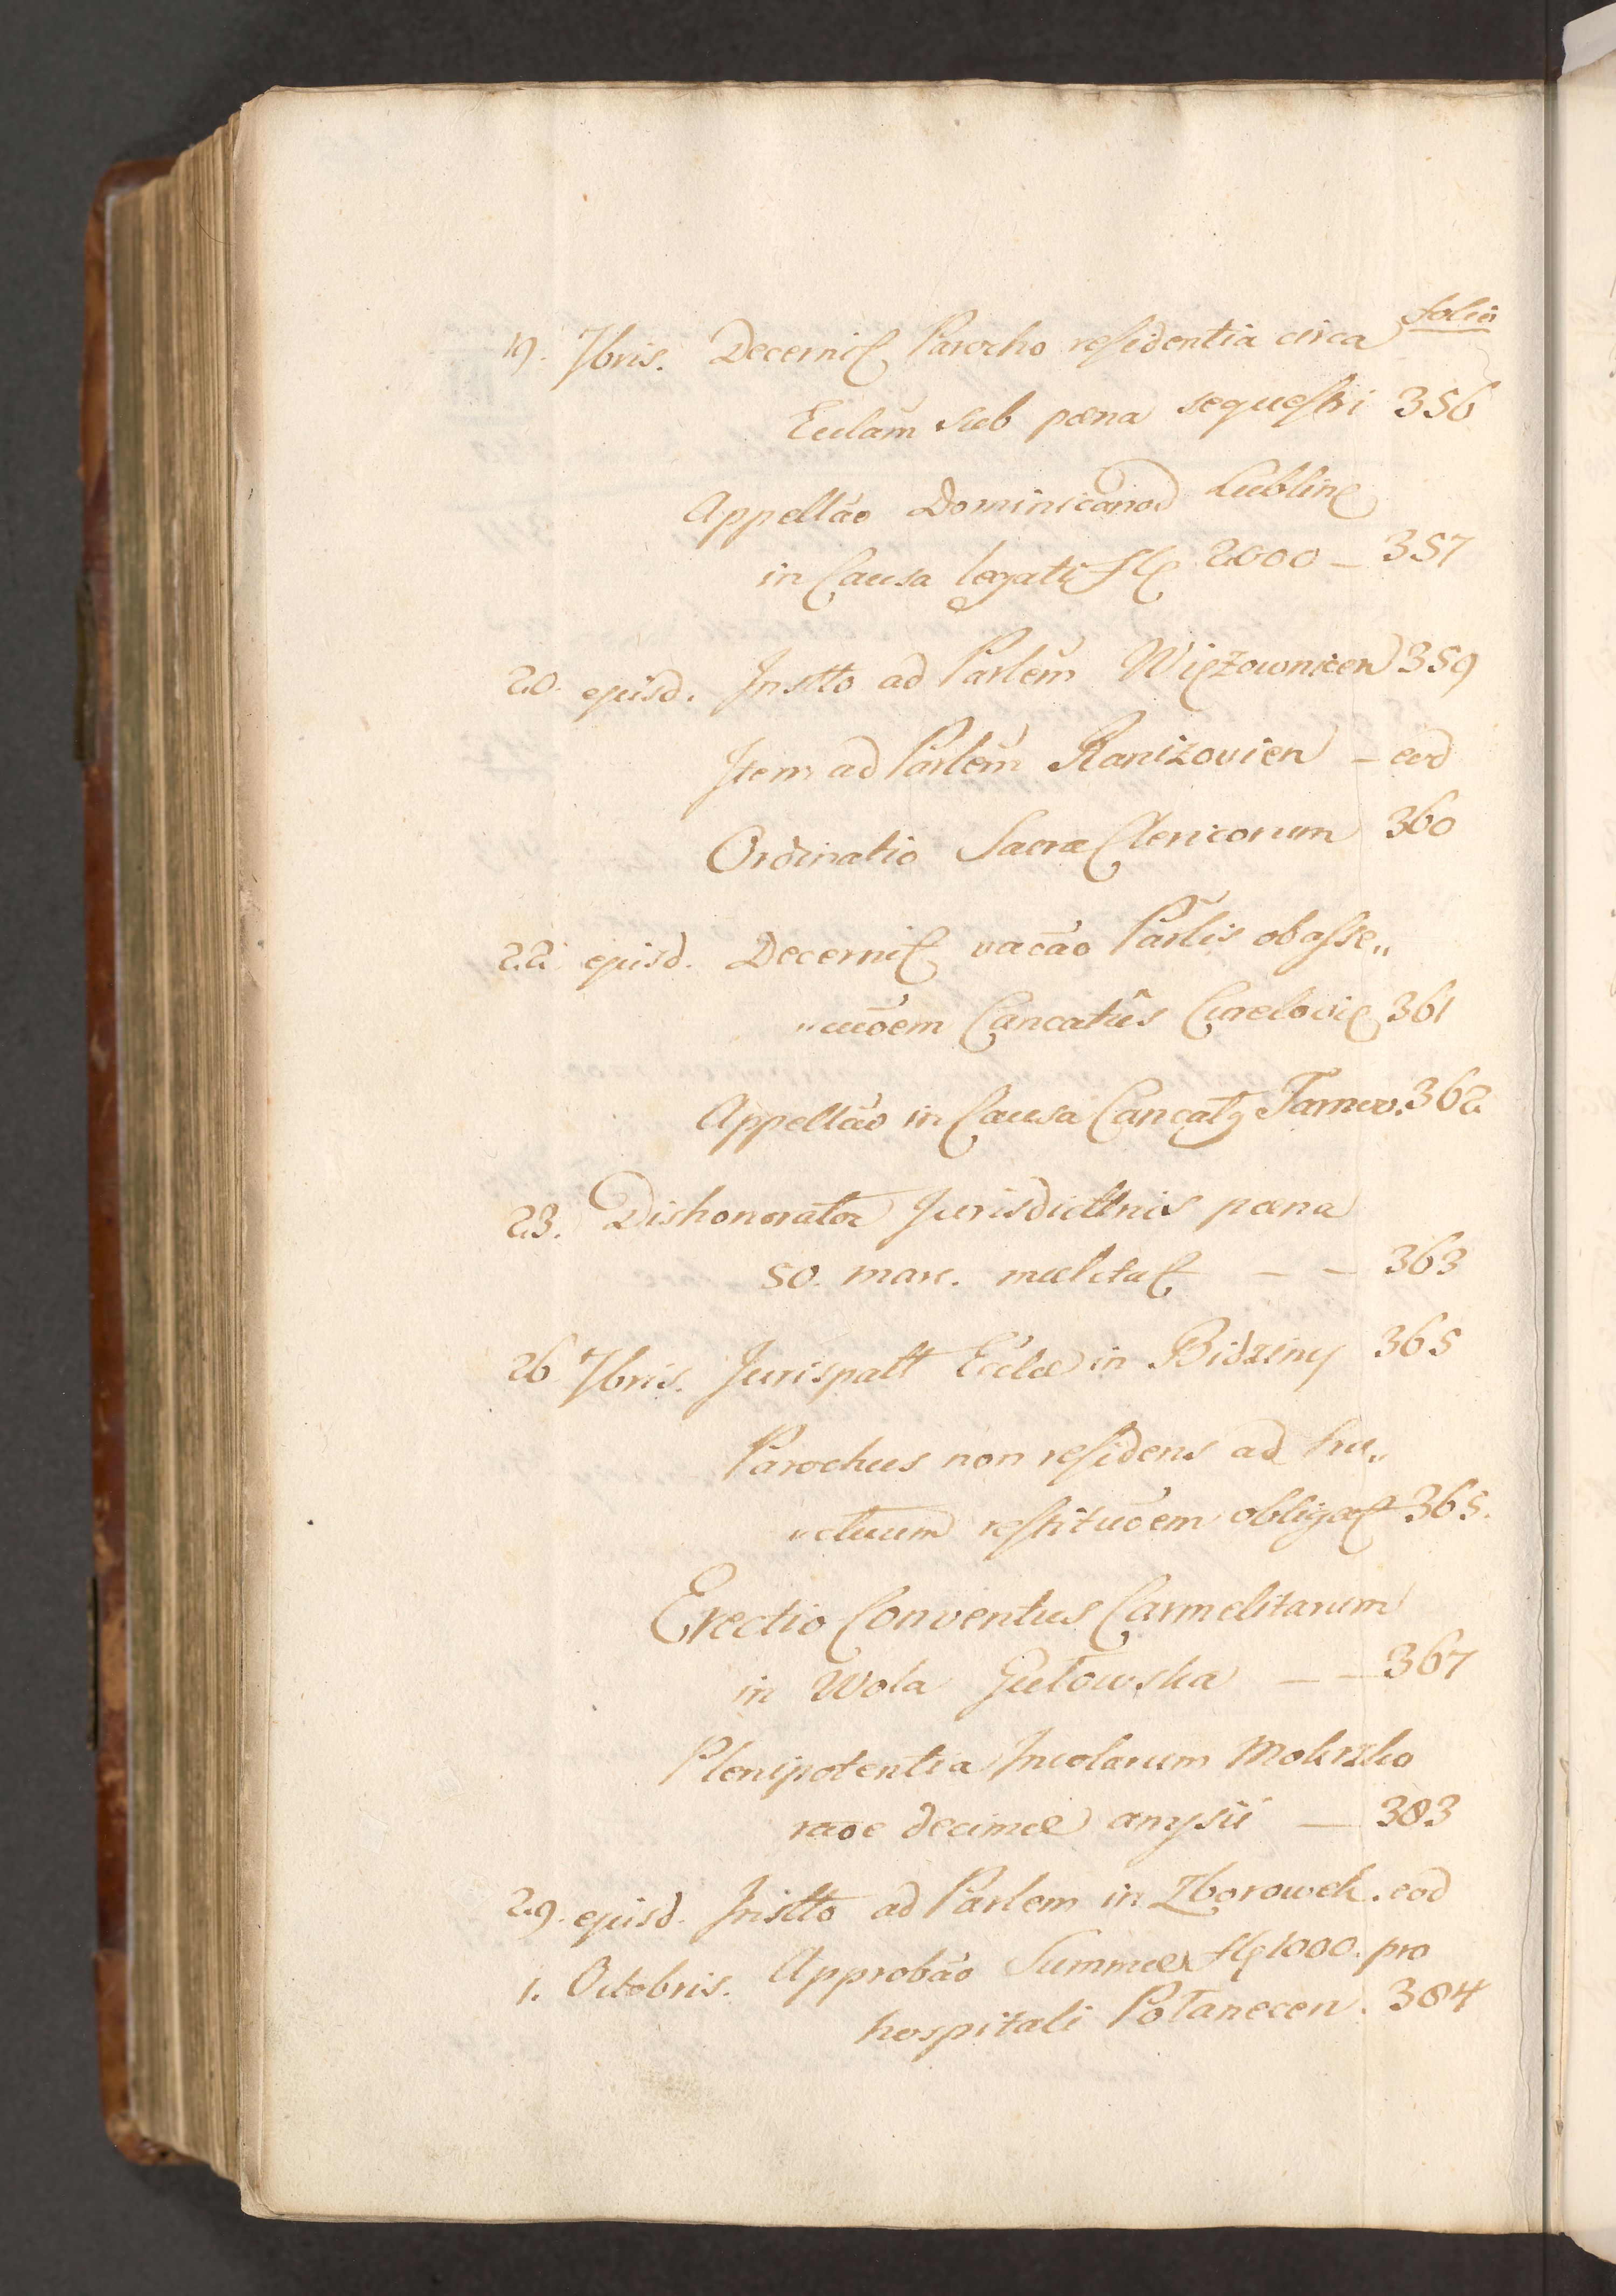 folio
19. 7bris. Decernit Parocho residentia circa
Ecclam sub pœna sequestri 356
Appellāo Dominicanor Lublin
in Causa legati fl 2000 – 357
20. ejusd. Instto ad Parlem Więżownicen 359
Item ad Parlem Ranizovien – eod
Ordinatio Sacra Clericorum 360
22. ejusd. Decernit vacāo Parlis ob asse„
„cuōem Cancatūs Curelovie 361
Appellāo in Causa Cancatus Tarnov. 362
23. Dishonorator Jurisdictnis pœna
50. marc. mulctat – – 363
26 7bris. Jurispatt Ecclæ in Bidziny 365
Parochus non residens ad fru„
„ctuum restitucoem obligat 365.
Erectio Conventus Carmelitarum
in Wola Gułowska – – 367
Plenipotentia Incolarum Mokrzko
raoe decimæ amysii – 383
29. ejusd. Instto ad Parlem in Zborowek. eod
1. Octobris. Approbāo Summæ fl 1000. pro
hospitali Połanecen. 384